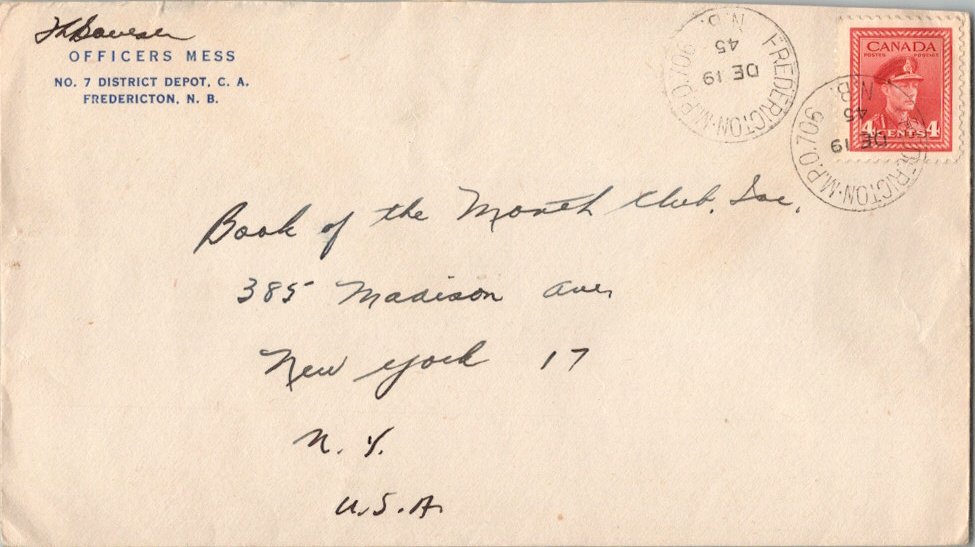 OFFICERS MESS
NO. 7 DISTRICT DEPOT, C. A.
FREDERICTON, N. B.
FREDERICTON·M.P.O.706
DE 19
45
N.B.
CANADA
POSTES POSTAGE
4 CENTS 4
FREDERICTON·M.P.O.706
DE 19
45
N.B.
Book of the Month Club, Inc.
385 Madison Ave,
New York 17
N. Y.
U.S.A.